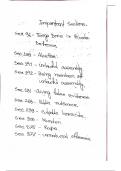 Important Sections.
Sec 96 - Things done in Private
Defence.
Sec 141 - Unlawful assembly
Sec 142 - Being member of
unlawful assembly
Sec 191 - Giving false evidence
Sec 268 - Public nuisance.
Sec 299 - Culpable homicide.
Sec 300 - Murder.
Sec 375 - Rape.
Sec 377 - unnatural offences